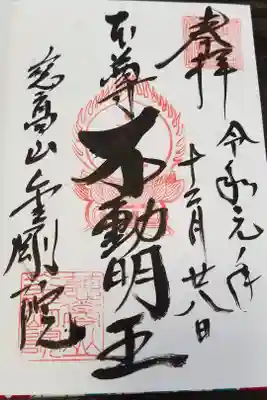 奉拝
令和元年
十二月廿八日
本尊
不動明王
慈高山金剛院